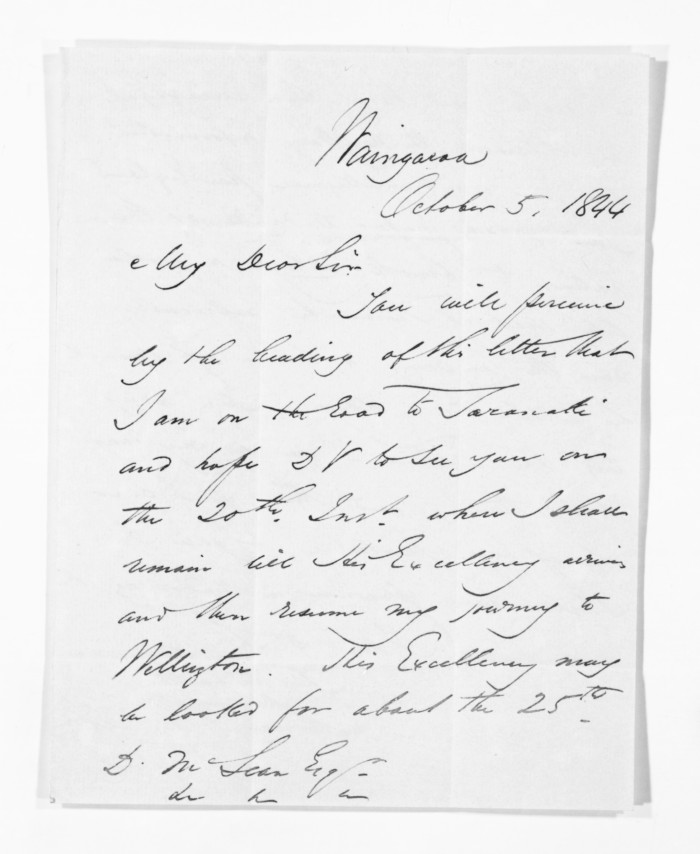 Waingaroa
October 5, 1844
My Dear Sir
You will perceive
by the heading of this letter that
I am on the Road to Taranaki
and hope D V to see you on
the 20th. Inst. where I shall
remain till His Excellency arrives
and then resume my journey to
Wellington. His Excellency may
be looked for about the 25th
D. McLean Esqr